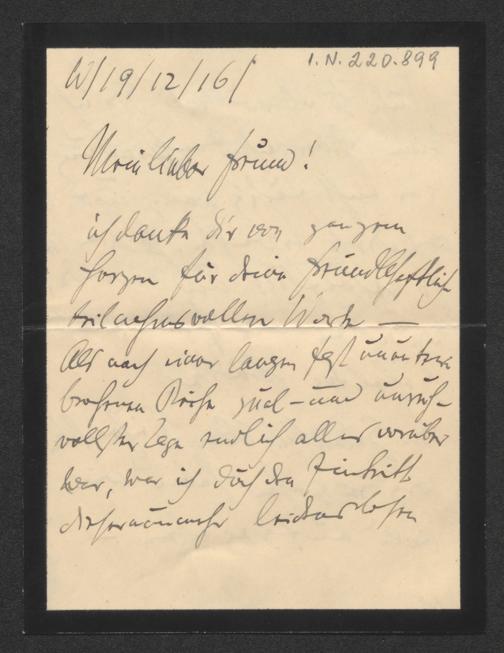 I.N. 220.899
W/19/12/16/
Mein lieber Freund!
ich danke dir von ganzem
Herzen für deine freundschaftlich
teilnahmsvollen Worte —
Als nach einer langen fast ununter-
brochenen Reihe qual- und unruh-
vollster Tage endlich alles vorüber
war, war ich durch den Eintritt
dieser nunmehr